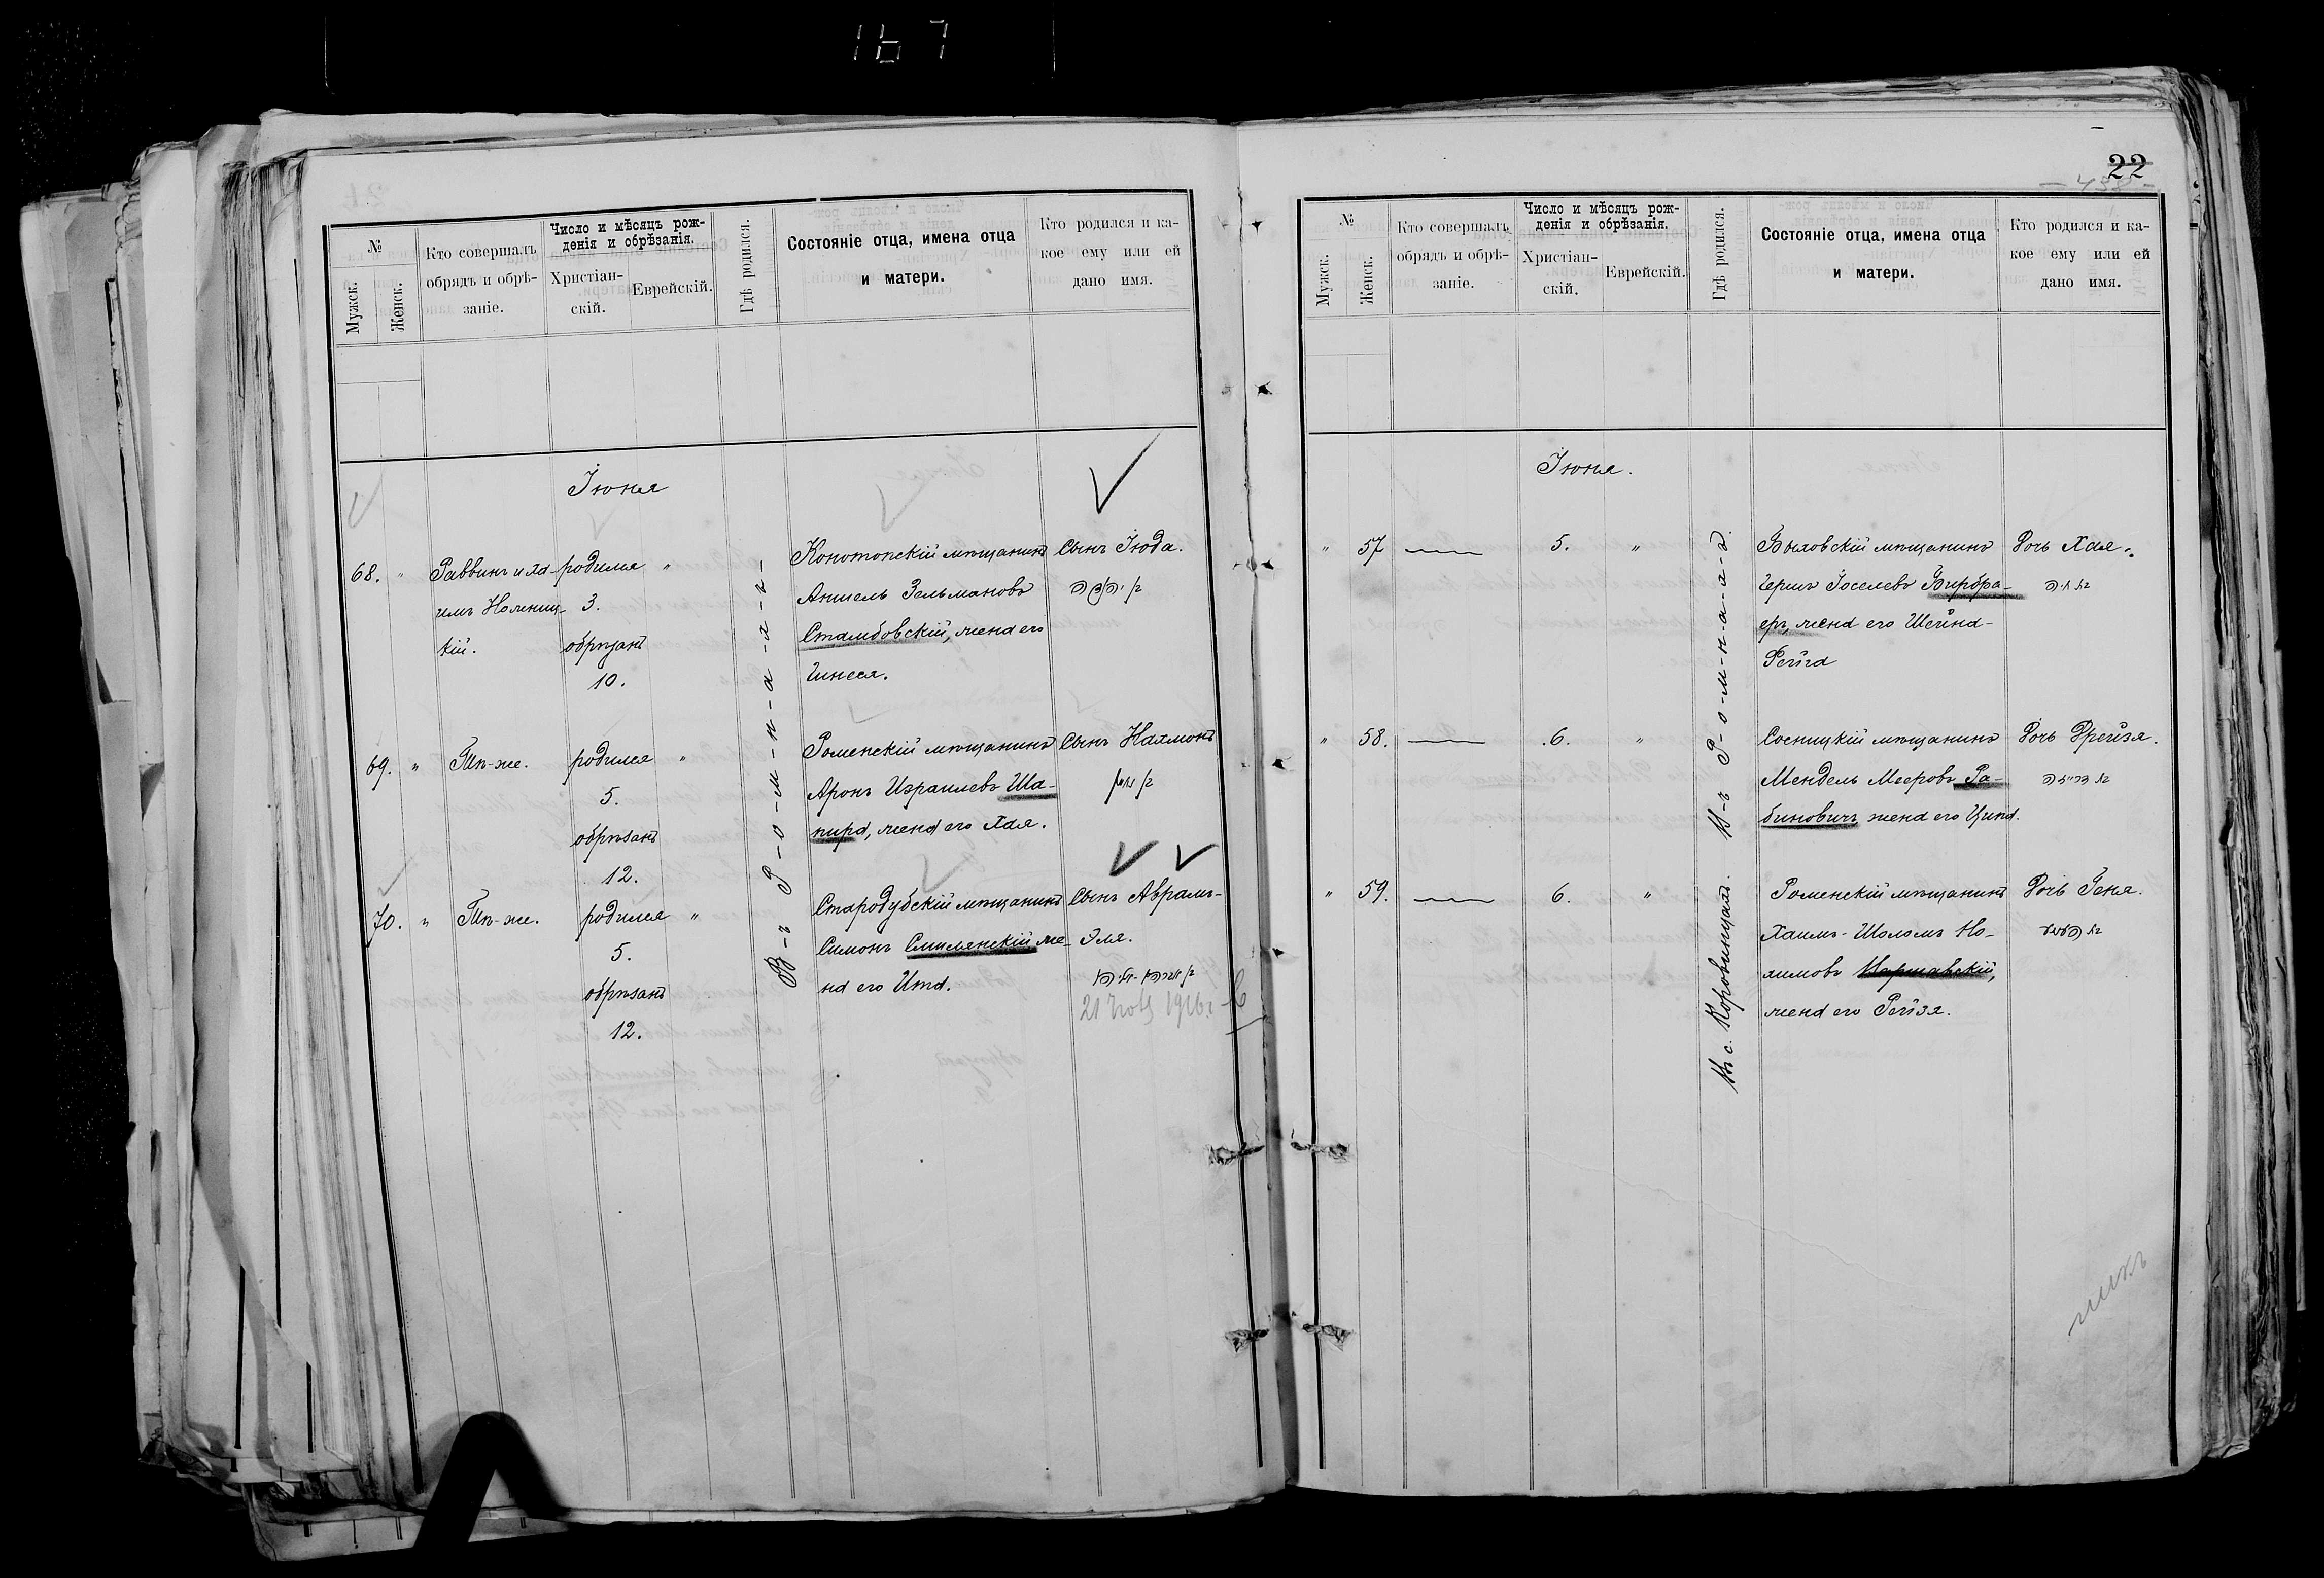 167
№
Мужск.
Женск.
Кто совершалъ
обрядъ и обрѣ-
заніе.
Число и мѣсяцъ рож-
денія и обрѣзанія.
Христіан-
скій.
Еврейскій.
Гдѣ родился.
Состояніе отца, имена отца
и матери.
Кто родился и ка-
кое ему или ей
дано имя.
Іюня
68. "
Раввинъ и Ха-
имъ
кій.
родился "
3.
обрѣзанъ
10.
Конотопскій мѣщанинъ
Аншель Зельмановъ
Стамбовскій, жена его
Гинеся.
Сынъ Іюда.
69. "
Тѣ-же.
родился "
5.
обрѣзанъ
12.
Роменскій мѣщанинъ
Аронъ Израилевъ Ша-
пира, жена его Хая.
Сынъ Нахмонъ
70. "
Тѣ-же.
родился "
5.
обрѣзанъ
12.
Стародубскій мѣщанинъ
Симонъ Смилянскій же-
на его Ита.
Сынъ Абрамъ-
Эля.
В-ъ Р-о-м-н-а-х-ъ-
22
№
Мужск.
Женск.
Кто совершалъ
обрядъ и обрѣ-
заніе.
Число и мѣсяцъ рож-
денія и обрѣзанія.
Христіан-
скій.
Еврейскій.
Гдѣ родился.
Состояніе отца, имена отца
и матери.
Кто родился и ка-
кое ему или ей
дано имя.
Іюня.
" 57
5. "
Быховскій мѣщанинъ
Гершъ Іоселевъ Бирбра-
еръ, жена его Шейна-
Рейза
Дочь Хая.
" 58.
6. "
Сосницкій мѣщанинъ
Мендель Мееровъ Ра-
биновичъ жена его Ципа.
Дочь Фрейзя.
" 59.
6. "
Роменскій мѣщанинъ
Хаимъ-Шоломъ Но-
химовъ Варшавскій,
жена его Рейзя.
Дочь Геня.
Въ с. Коровинцахъ. В-ъ Р-о-м-н-а-х-ъ.